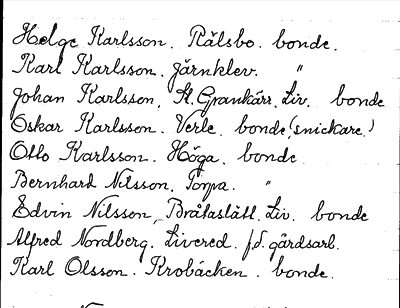 Helge Karlsson. Rålsbo. bonde.
Karl Karlsson. Järnklev. "
Johan Karlsson, St. Grankärr. Liv. bonde
Oskar Karlsson. Verle. bonde, (snickare.)
Otto Karlsson. Höga. bonde.
Bernhard Nilsson, Torpa. "
Edvin Nilsson, Bråtaslätt. Liv. bonde
Alfred Nordberg. Livered. f.d. gårdsarb.
Karl Olsson. Krobäcken. bonde.